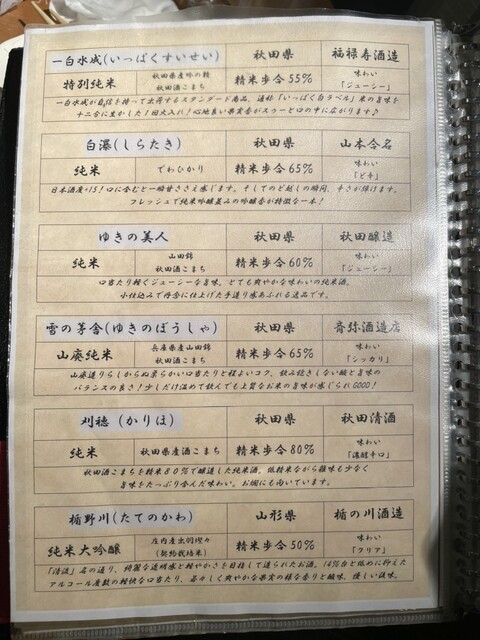 一白水成(いっぱくすいせい) 秋田県 福禄寿酒造
特別純米 秋田県産吟の精 秋田酒こまち 精米歩合55% 味わい「ジューシー」
一白水成が自信を持って出荷するスタンダード商品。通称「いっぱく白ラベル」米の旨味を
十二分に生かした1回火入れ!心地良い果実香がスゥーと口の中に広がります♪
白瀑(しらたき) 秋田県 山本合名
純米 でわひかり 精米歩合65% 味わい「ど辛」
日本酒度+15!口に含むと一瞬甘ささえ感じます。そしてのど越しの瞬間、辛さが弾けます。
フレッシュで純米吟醸並みの吟醸香が特徴な一本!
ゆきの美人 秋田県 秋田醸造
純米 山田錦 秋田酒こまち 精米歩合60% 味わい「ジューシー」
口当たり軽くジューシーな旨味。とても爽やかな味わいの純米酒。
小仕込みで丹念に仕上げた手造り感あふれる逸品です。
雪の茅舎(ゆきのぼうしゃ) 秋田県 齋弥酒造店
山廃純米 兵庫県産山田錦 秋田酒こまち 精米歩合65% 味わい「シッカリ」
山廃造りらしからぬ柔らかい口当たりと程よいコク、飲み飽きしない酸と旨味の
バランスの良さ!少しだけ温めて飲んでも上質なお米の旨味が感じられGOOD!
刈穂 (かりほ) 秋田県 秋田清酒
純米 秋田県産酒こまち 精米歩合80% 味わい「濃醇辛口」
秋田酒こまちを精米80%で醸造した純米酒。低精米ながら雑味も少なく
旨味をたっぷり含んだ味わい。お燗にも向いています。
楯野川(たてのかわ) 山形県 楯の川酒造
純米大吟醸 庄内産出羽燦々 (契約栽培米) 精米歩合50% 味わい「クリア」
「清流」名の通り、綺麗な透明感と軽やかさを目指して造られたお酒。14%台と低めに抑えた
アルコール度数の軽快な口当たり、若々しく爽やかな果実の様な香りと酸味。優しい滋味。